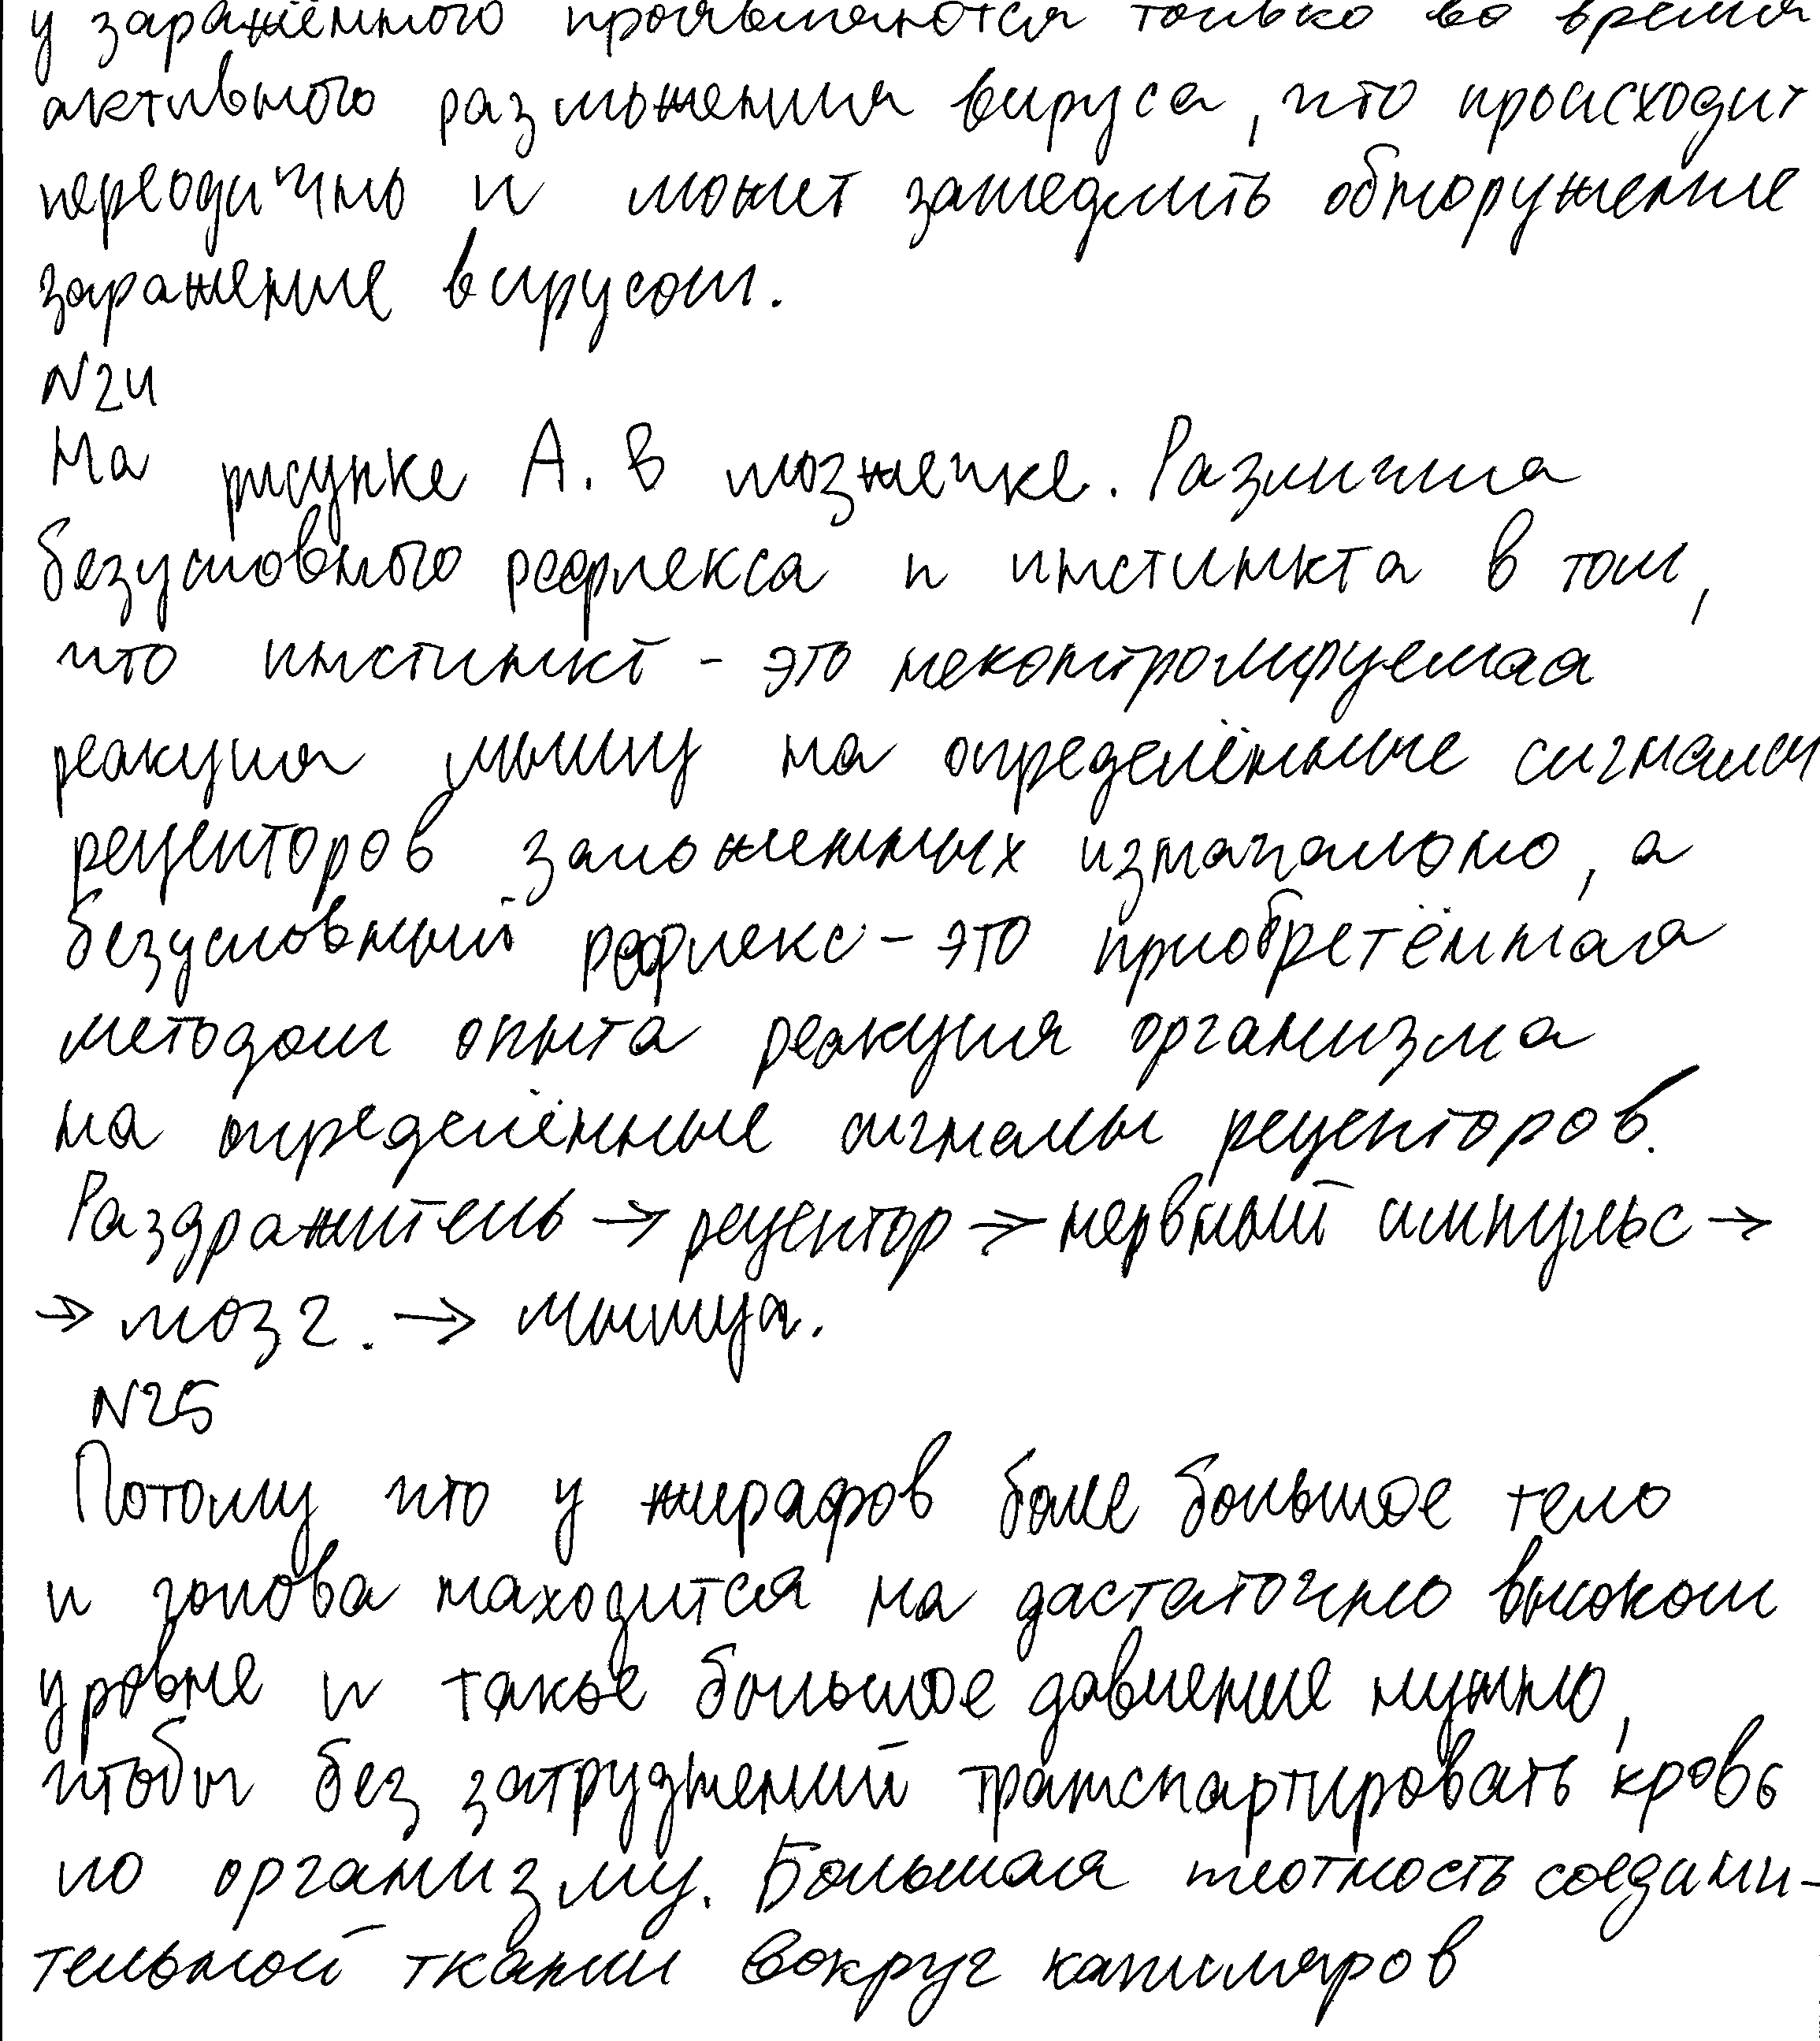 у заражённого проявляются только во время
активного размножения вируса, что происходит
переодично и может замедлить обнаружение
заражение вирусом.
N24
На рисунке А. В мозжечке. Различия
безусловного рефлекса и инстинкта в том,
что инстинкт - это неконтролируемая
реакция мышц на определённые сигналы
рецепторов заложенных изначально, а
безусловный рефлекс - это приобретённая
методом опыта реакция организма
на определённые сигналы рецепторов.
Раздражитель → рецептор → нервный импульс →
→ мозг. → мышца.
N25
Потому что у жирафов боле большое тело
и голова находится на дастаточно высоком
уровне и такое большое давление нужно,
чтобы без затруднений транспартировать кровь
по организму. Большая плотность соедини-
тельной ткани вокруг капиляров